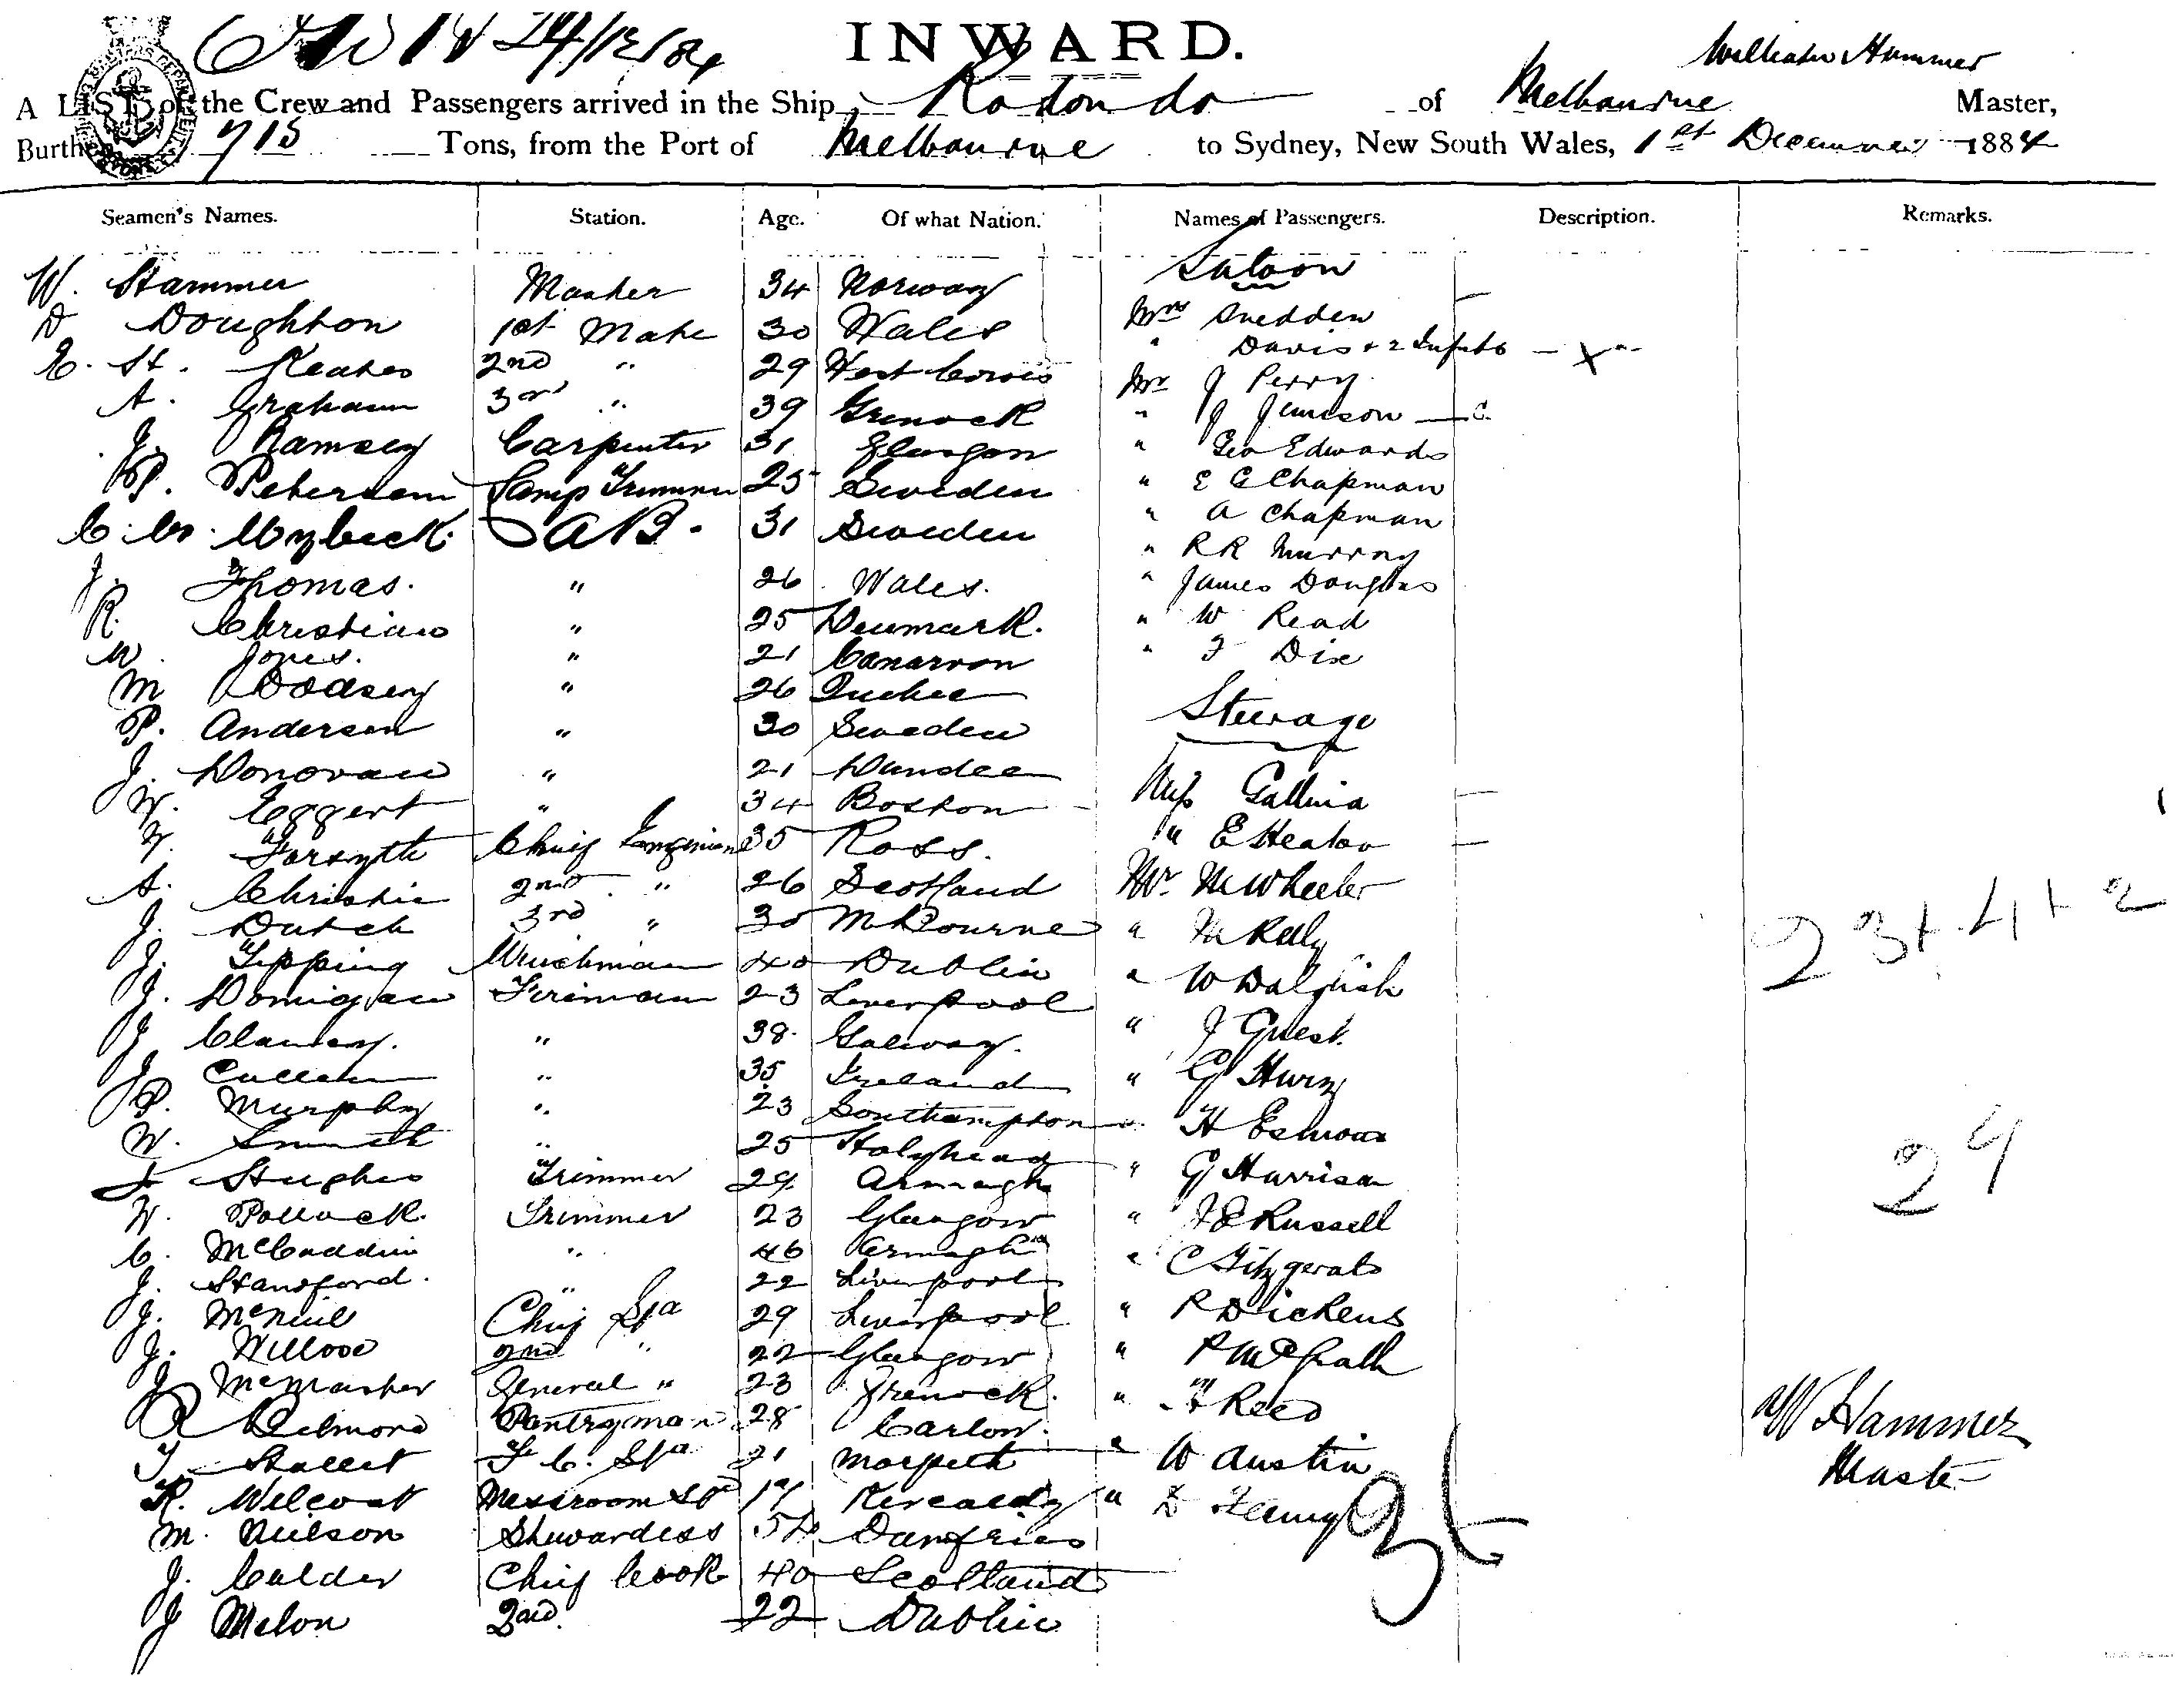 INWARD.
William Hammer
A LIST of the Crew and Passengers arrived in the Ship Rotondo of Melbourne Master,
Burthen 715 Tons, from the Port of Melbourne to Sydney, New South Wales, 1st December 1884
Seamen's Names. Station. Age. Of what Nation. Names of Passengers. Description. Remarks.
Saloon
W. Hammer Master 34 Norway
Mrs Snedden
D Doughton 1st Mate 30 Wales
" Davis + 2 Infants
E. H. Keates 2nd " 29
Mr J Perry
A. Graham 3rd " 39 Grenock
" J Jamieson
J. Ramsey Carpenter 31 Glasgow
" Geo Edwards
P. Petersen Lamp Trimmer 25 Sweden
" E C Chapman
A.B. 31 Sweden
" A Chapman
" R R Murray
J. Thomas. " 26 Wales.
" James Douglas
R. Christians " 25 Denmark.
" W Read
W. Jones. " 21 Canarvon
" F Dix
M Dodsey " 26 Quebec
P. Andersen " 30 Sweden
Steerage
J. Donovan " 21 Dundee
Miss Gallina
W. Eggert " 34 Boston
" E Heaton
T. Forsyth Chief Engineer 35 Ross.
A. Christie 2nd " 26 Scotland
Mr M Wheeler
J. Dutch 3rd " 30 Melbourne
" M Kelly
23 + 4 + 2
J. Tipping Winchman 40 Dublin
" W Dalglish
J. Donnigan Fireman 23 Liverpool
J Clancy. " 38 Galway.
" J Guest.
J Cullen " 35 Ireland
" G Hurn
P. Murphy " 23 Southampton
W. Smith " 25 Holyhead
" H
29
J Hughes Trimmer 29 Armagh
" G Harrison
W. Pollock. Trimmer 23 Glasgow
" J E Russell
C. McCaddin " 46 Armagh
" C Fitzgerald
J. Standford. " 22 Liverpool
J. McNeill Chief Std 29 Liverpool
" P Dickens
J. Willove 2nd " 22 Glasgow
" P McGrath
J McMaster General " 23 Grenock.
" H Reed
R Delmore Pantryman 28 Carlow.
W Hammer
Master
T. Hallett F. C. Std 21 Morpeth
" W Austin
R. Wilcoat Messroom Std 19 Kircaldy
" D
M. Neilson Stewardess 54 Dumfries
J. Calder Chief Cook 40 Scotland
J Melon 2nd 22 Dublin